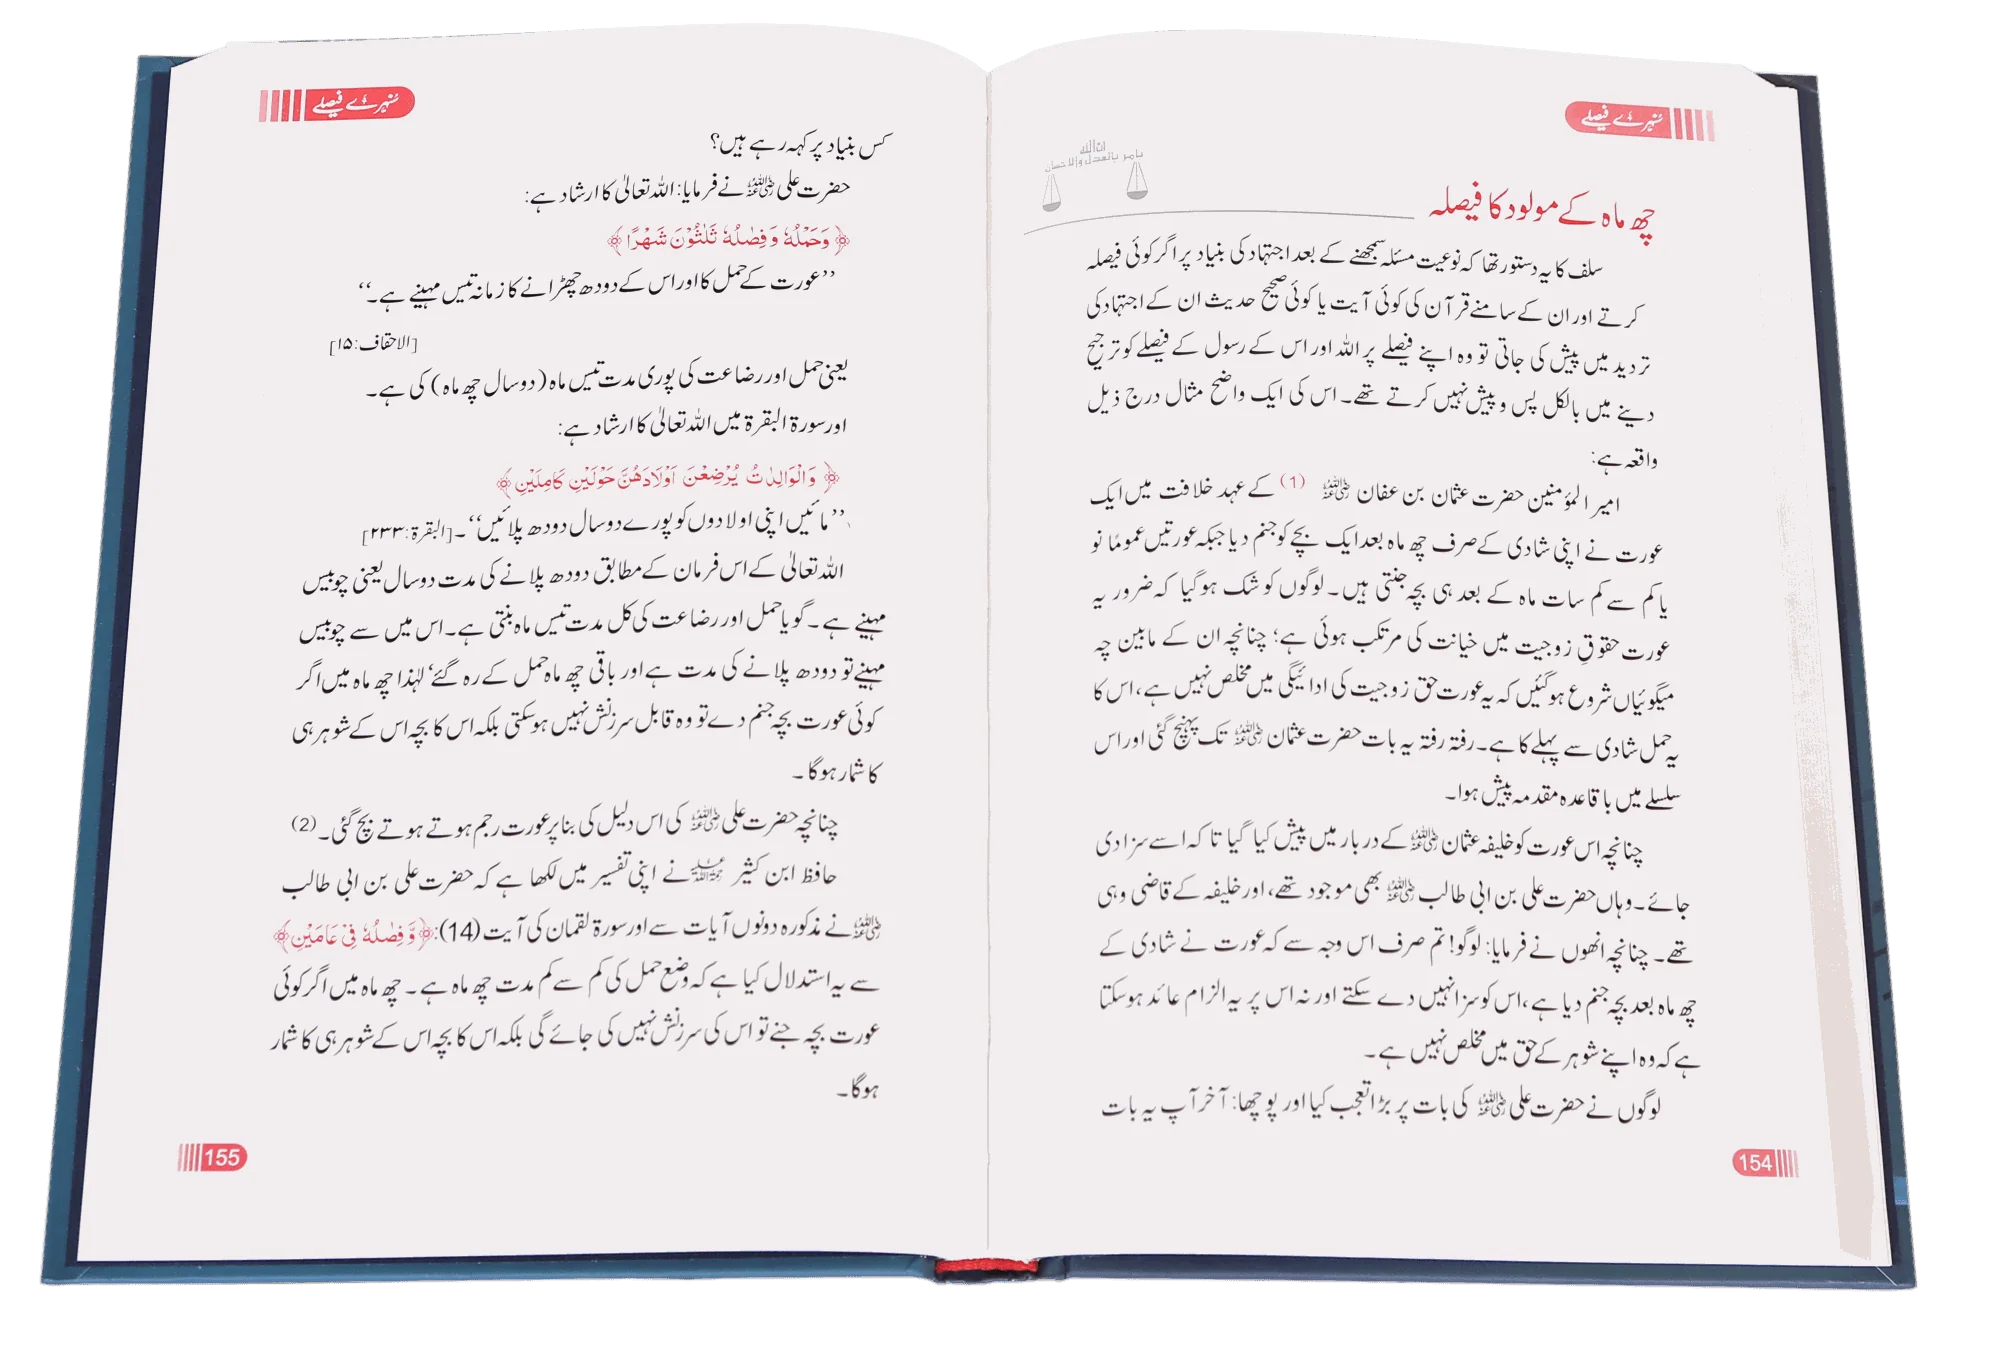 سنہرے فیصلے
ان الله
يامر بالعدل والاحسان
چھ ماہ کے مولود کا فیصلہ
سلف کا یہ دستور تھا کہ نوعیت مسئلہ سمجھنے کے بعد اجتہاد کی بنیاد پر اگر کوئی فیصلہ
کرتے اور ان کے سامنے قرآن کی کوئی آیت یا کوئی صحیح حدیث ان کے اجتہاد کی
تردید میں پیش کی جاتی تو وہ اپنے فیصلے پر اللہ اور اس کے رسول کے فیصلے کو ترجیح
دینے میں بالکل پس و پیش نہیں کرتے تھے۔ اس کی ایک واضح مثال درج ذیل
واقعہ ہے:
امیر المؤمنین حضرت عثمان بن عفان رضی اللہ عنہ (1) کے عہد خلافت میں ایک
عورت نے اپنی شادی کے صرف چھ ماہ بعد ایک بچے کو جنم دیا جبکہ عورتیں عموماً نو
یا کم سے کم سات ماہ کے بعد ہی بچہ جنتی ہیں۔ لوگوں کو شک ہوگیا کہ ضرور یہ
عورت حقوقِ زوجیت میں خیانت کی مرتکب ہوئی ہے؛ چنانچہ ان کے مابین چہ
میگوئیاں شروع ہوگئیں کہ یہ عورت حق زوجیت کی ادائیگی میں مخلص نہیں ہے، اس کا
یہ حمل شادی سے پہلے کا ہے۔ رفتہ رفتہ یہ بات حضرت عثمان رضی اللہ عنہ تک پہنچ گئی اور اس
سلسلے میں باقاعدہ مقدمہ پیش ہوا۔
چنانچہ اس عورت کو خلیفہ عثمان رضی اللہ عنہ کے دربار میں پیش کیا گیا تاکہ اسے سزا دی
جائے۔ وہاں حضرت علی بن ابی طالب رضی اللہ عنہ بھی موجود تھے، اور خلیفہ کے قاضی وہی
تھے۔ چنانچہ انھوں نے فرمایا: لوگو! تم صرف اس وجہ سے کہ عورت نے شادی کے
چھ ماہ بعد بچہ جنم دیا ہے، اس کو سزا نہیں دے سکتے اور نہ اس پر یہ الزام عائد ہوسکتا
ہے کہ وہ اپنے شوہر کے حق میں مخلص نہیں ہے۔
لوگوں نے حضرت علی رضی اللہ عنہ کی بات پر بڑا تعجب کیا اور پوچھا: آخر آپ یہ بات
154
سنہرے فیصلے
کس بنیاد پر کہہ رہے ہیں؟
حضرت علی رضی اللہ عنہ نے فرمایا: اللہ تعالیٰ کا ارشاد ہے:
﴿وَحَمْلُهٗ وَفِصٰلُهٗ ثَلٰثُوْنَ شَهْرًا﴾
’’عورت کے حمل کا اور اس کے دودھ چھڑانے کا زمانہ تیس مہینے ہے۔‘‘
[الاحقاف: ۱۵]
یعنی حمل اور رضاعت کی پوری مدت تیس ماہ (دو سال چھ ماہ) کی ہے۔
اور سورۃ البقرۃ میں اللہ تعالیٰ کا ارشاد ہے:
﴿وَالْوَالِدٰتُ يُرْضِعْنَ اَوْلَادَهُنَّ حَوْلَيْنِ كَامِلَيْنِ﴾
’’مائیں اپنی اولادوں کو پورے دو سال دودھ پلائیں‘‘۔ [البقرۃ: ۲۳۳]
اللہ تعالیٰ کے اس فرمان کے مطابق دودھ پلانے کی مدت دو سال یعنی چوبیس
مہینے ہے۔ گویا حمل اور رضاعت کی کل مدت تیس ماہ بنتی ہے۔ اس میں سے چوبیس
مہینے تو دودھ پلانے کی مدت ہے اور باقی چھ ماہ حمل کے رہ گئے‘ لہٰذا چھ ماہ میں اگر
کوئی عورت بچہ جنم دے تو وہ قابل سرزنش نہیں ہوسکتی بلکہ اس کا بچہ اس کے شوہر ہی
کا شمار ہوگا۔
چنانچہ حضرت علی رضی اللہ عنہ کی اس دلیل کی بنا پر عورت رجم ہوتے ہوتے بچ گئی۔ (2)
حافظ ابن کثیر رحمۃ اللہ علیہ نے اپنی تفسیر میں لکھا ہے کہ حضرت علی بن ابی طالب
رضی اللہ عنہ نے مذکورہ دونوں آیات سے اور سورۃ لقمان کی آیت (14): ﴿وَّفِصٰلُهٗ فِيْ عَامَيْنِ﴾
سے یہ استدلال کیا ہے کہ وضع حمل کی کم سے کم مدت چھ ماہ ہے۔ چھ ماہ میں اگر کوئی
عورت بچہ جنے تو اس کی سرزنش نہیں کی جائے گی بلکہ اس کا بچہ اس کے شوہر ہی کا شمار
ہوگا۔
155